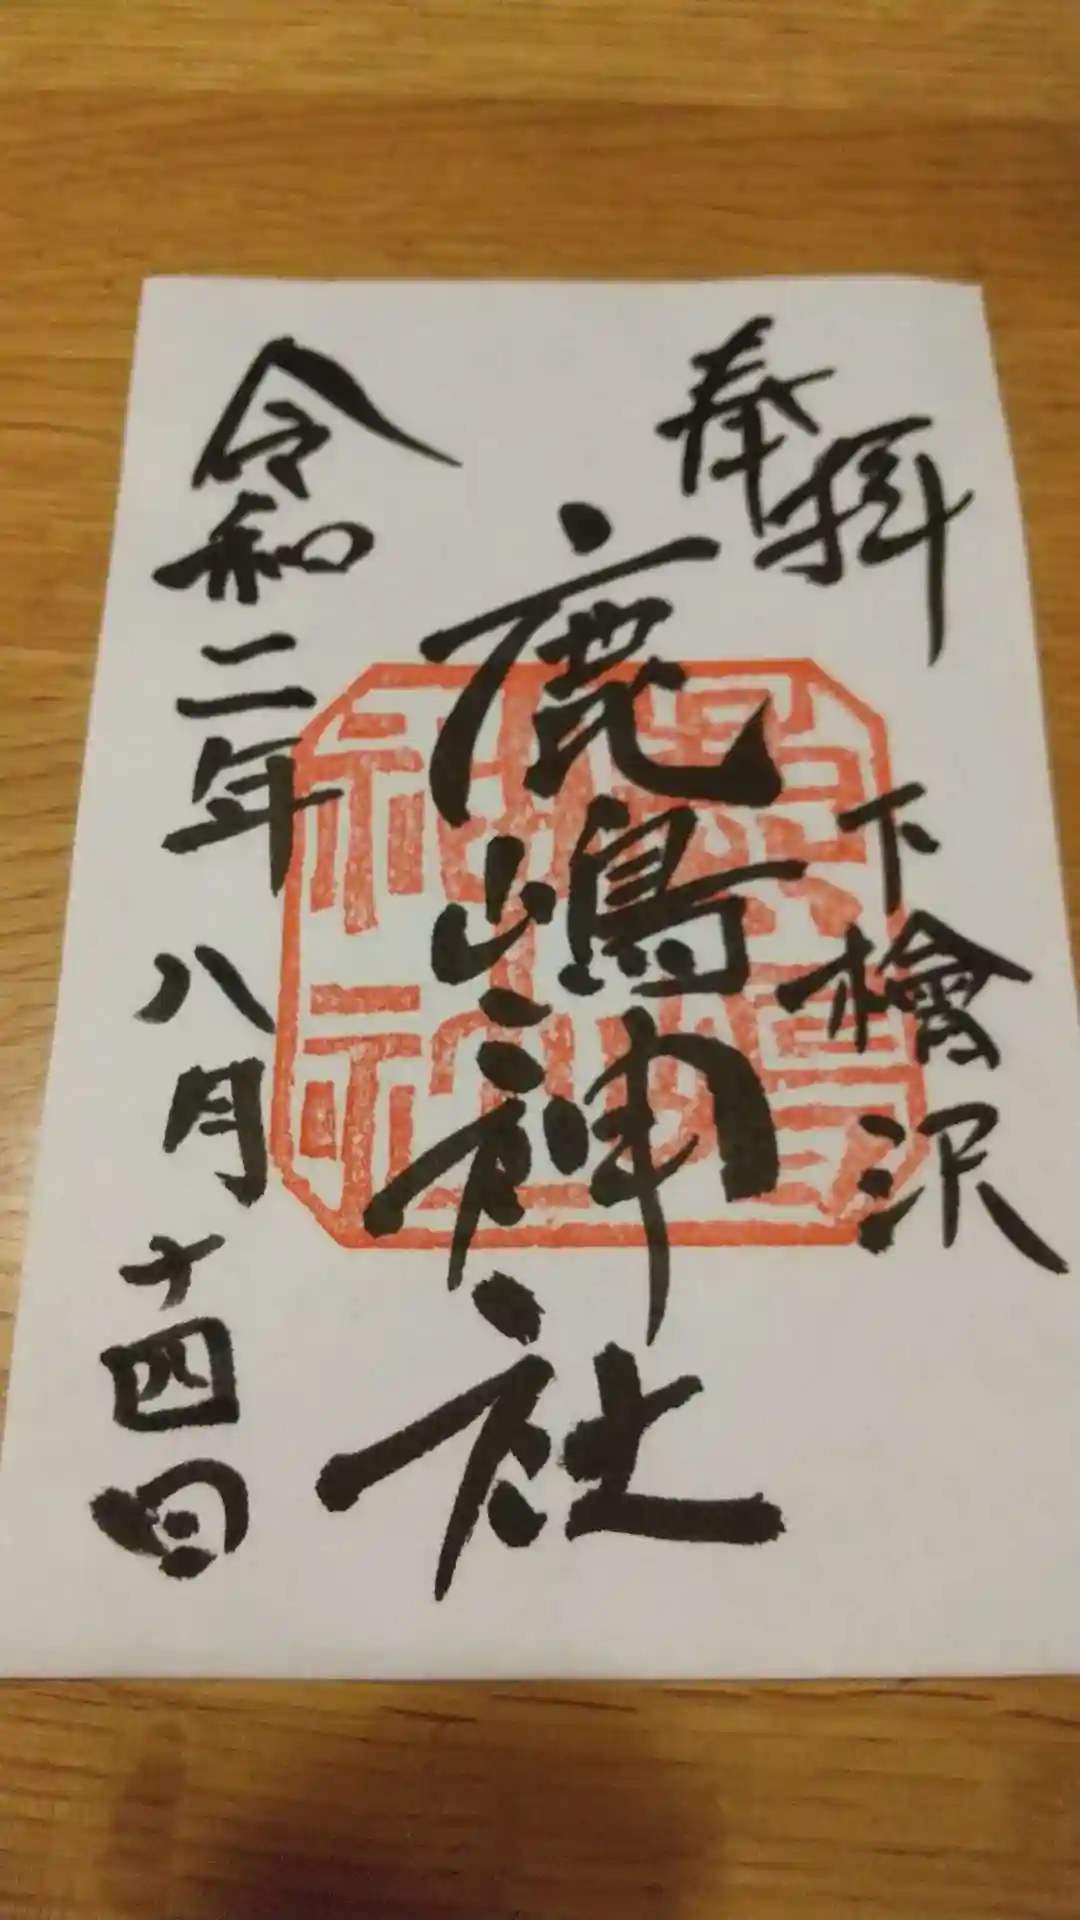 奉拝
下檜沢
鹿嶋神社
令和二年八月十四日